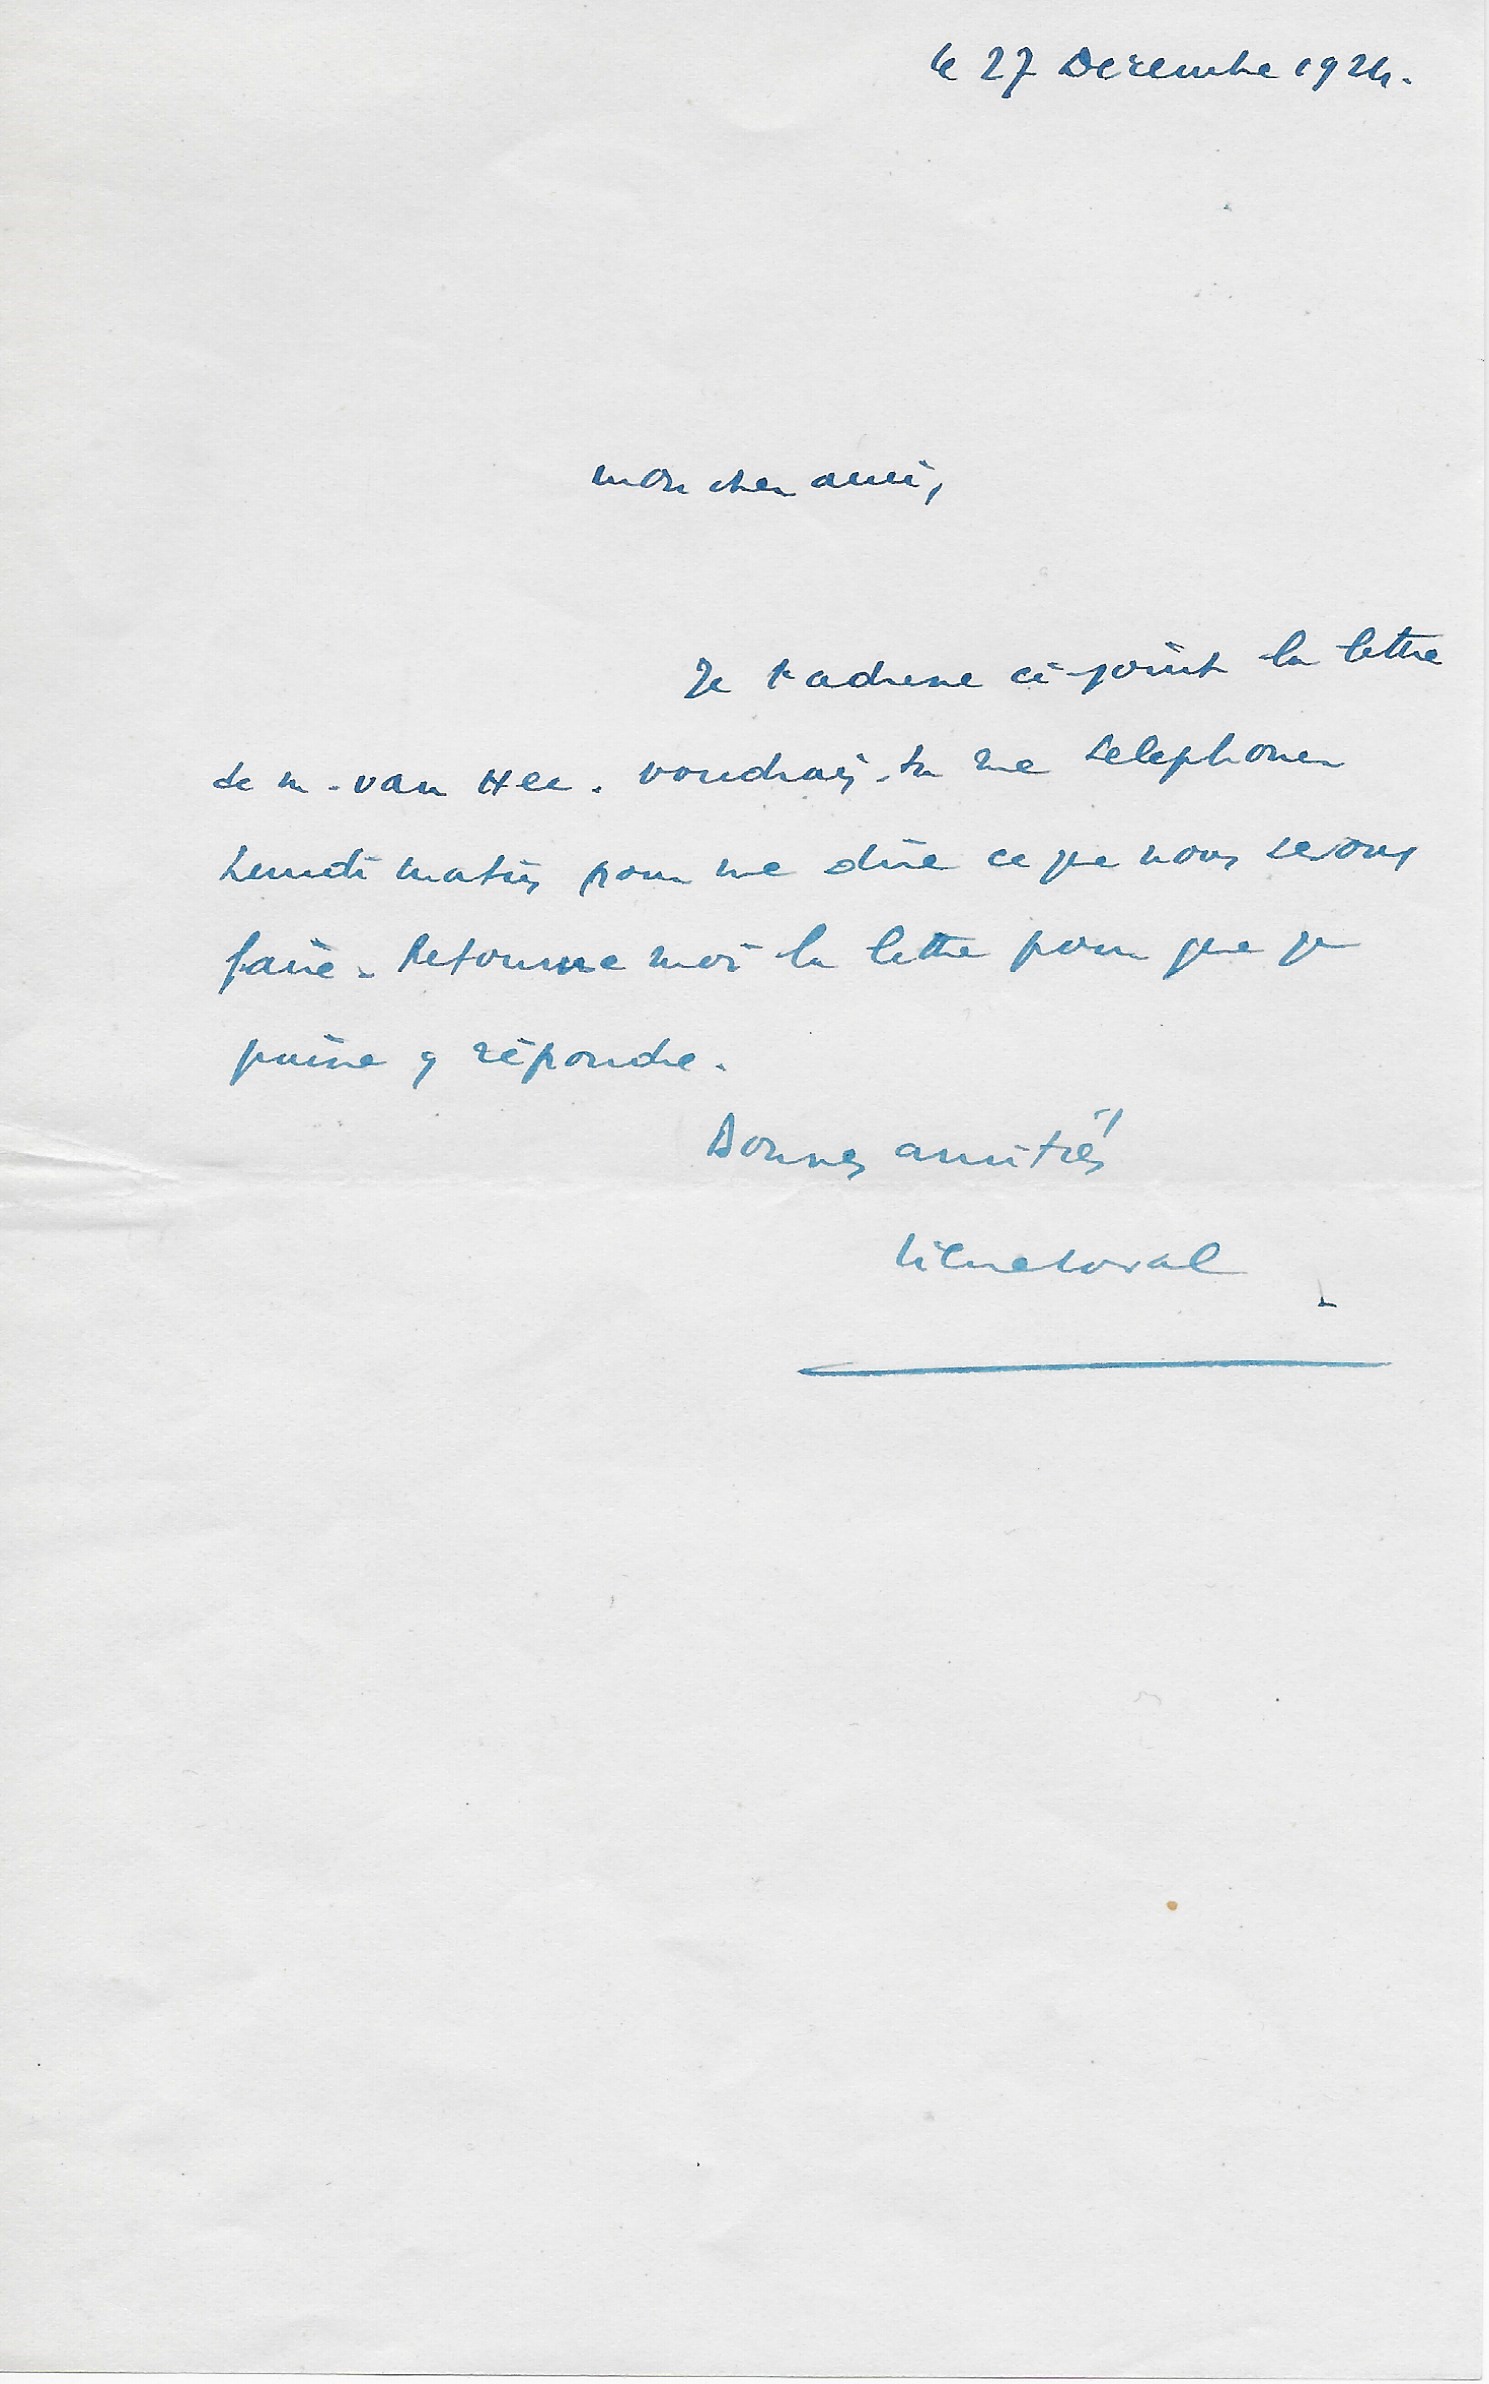 le 27 Decembre 1924.
mon cher ami,
Je t'adresse ci-joint la lettre
de M. Van Hee. Voudrais-tu me telephoner
Lundi matin pour me dire ce que nous devons
faire. Retourne moi la lettre pour que je
puisse y répondre.
Bonnes amitiés